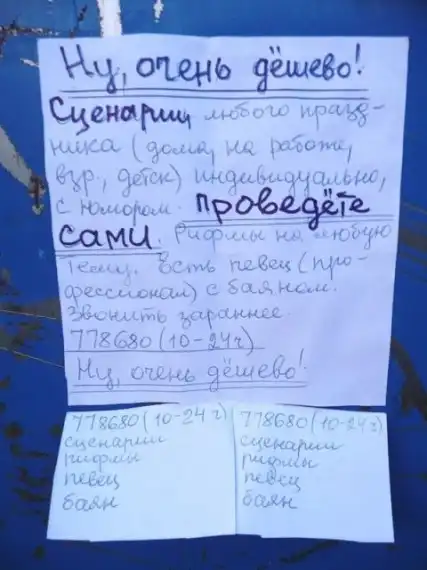 Ну, очень дёшево!
Сценарии любого празд-
ника (дома, на работе,
взр., детск) индивидуально,
с юмором. проведёте
сами. Рифмы на любую
тему. Есть певец (про-
фессионал) с баяном.
Звонить зараннее.
778680 (10-24ч)
Ну, очень дёшево!
778680 (10-24ч)
сценарии
рифмы
певец
баян
778680 (10-24ч)
сценарии
рифмы
певец
баян